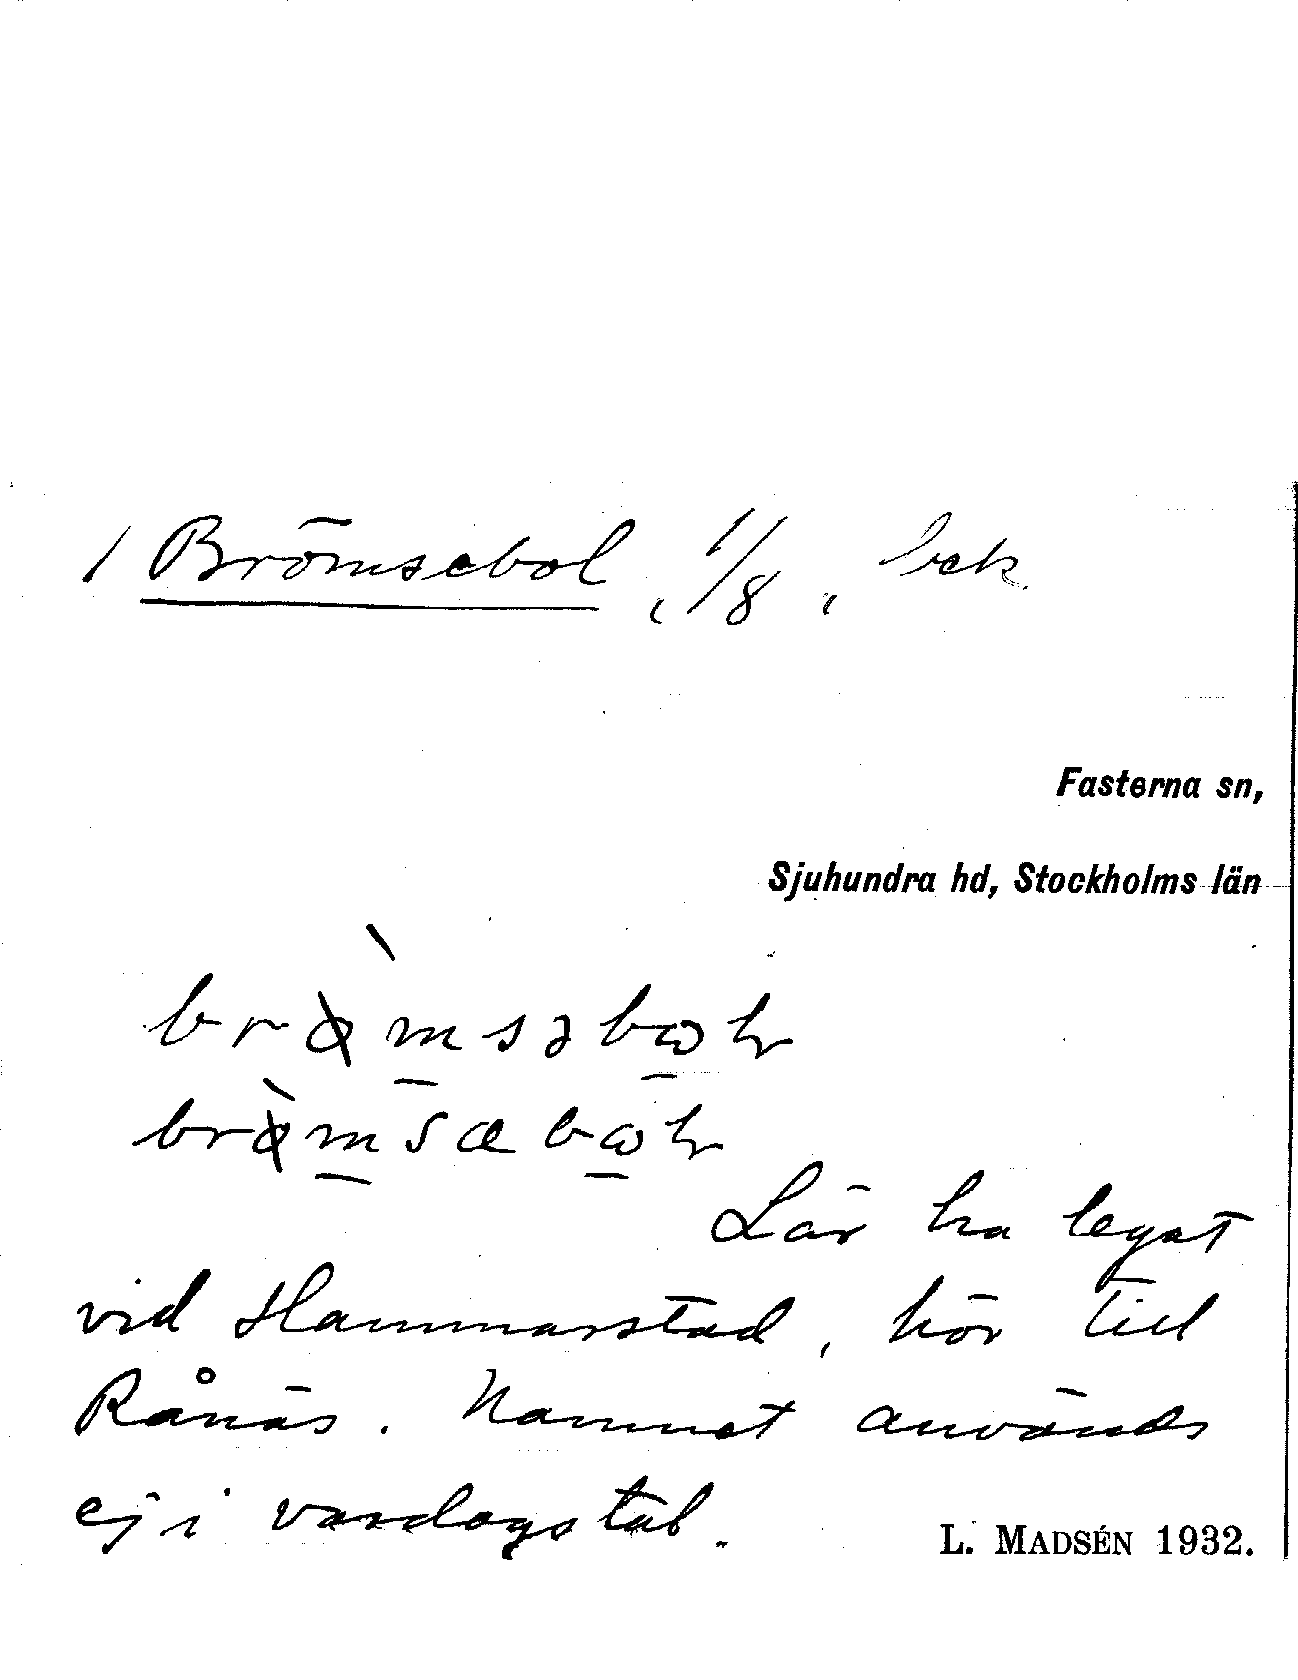 1 Brömsebol, 1/8, bek.
Fasterna sn,
Sjuhundra hd, Stockholms län
Lär ha legat
vid Hammarstad, hör till
Rånäs. Namnet används
ej i vardagstal.
L. MADSÉN 1932.